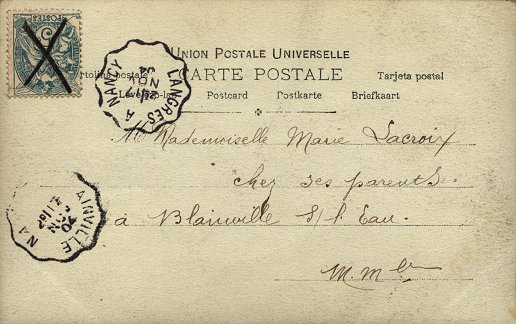 POSTES
UNION POSTALE UNIVERSELLE
CARTE POSTALE
postale Tarjeta postal
Postcard Postkarte Briefkaart
LANGRES A NANCY
Mademoiselle Marie Lacroix
chez ses parents.
à Blainville s/l Eau.
M. Mlle
AINVILLE
NA